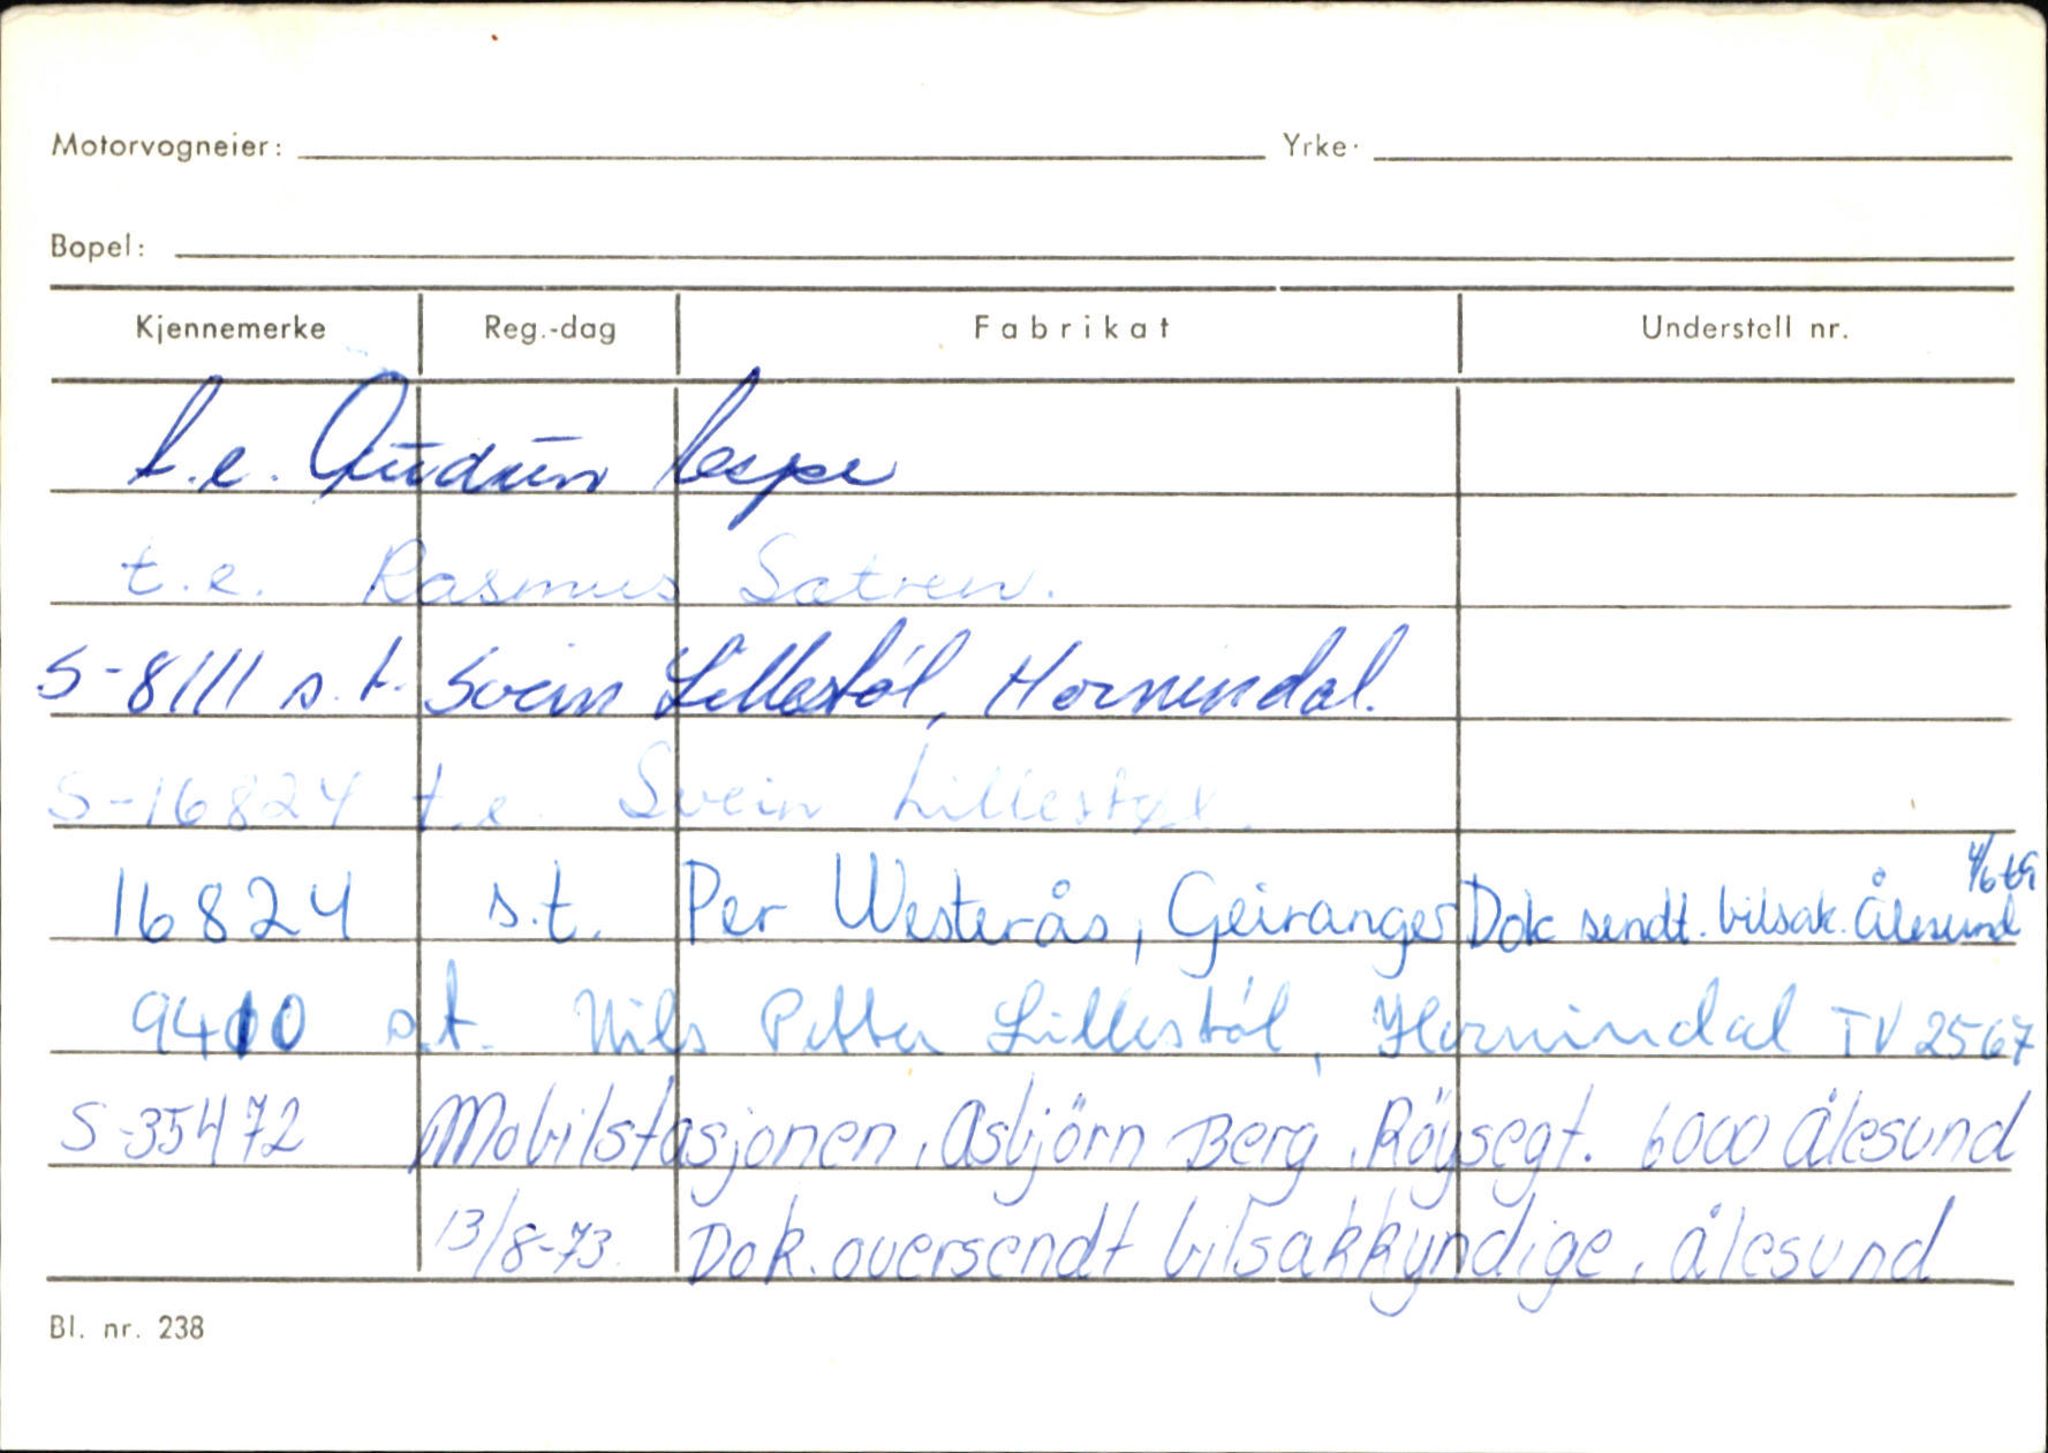 Motorvogneier: Yrke:
Bopel:
Kjennemerke Reg.-dag Fabrikat Understell nr.
t.e. Gudrun Espe
t.e. Rasmus Sætren.
S-8111 s.t. Svein Lillestøl, Hornindal.
S-16824 t.e. Svein Lillestøl.
4/6-69
16824 s.t. Per Westerås, Geiranger Dok sendt. bilsak. Ålesund
9410 s.t. Nils Petter Lillestól, Hornindal TV 2567
S-35472 Mobilstasjonen, Asbjörn Berg, Röysegt. 6000 Ålesund
13/8-73. Dok. oversendt bilsakkyndige, Ålesund
Bl. nr. 238